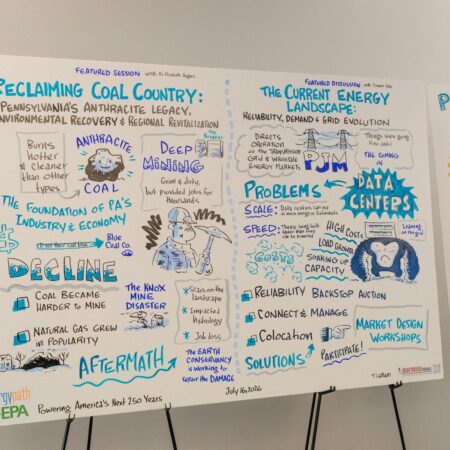 FEATURED SESSION with
RECLAIMING COAL COUNTRY:
PENNSYLVANIA'S ANTHRACITE LEGACY,
ENVIRONMENTAL RECOVERY & REGIONAL REVITALIZATION
Burns
Hotter
& Cleaner
than other
types
ANTHRACITE
COAL
The Breaker
DEEP
MINING
Grim & dirty,
but provided jobs for
thousands
THE FOUNDATION OF PA'S
INDUSTRY & ECONOMY
Blue
Coal Co.
DECLINE
COAL BECAME
HARDER TO MINE
NATURAL GAS GREW
IN POPULARITY
THE KNOX
MINE
DISASTER
* Scars on the
landscape
* Impacted
hydrology
* Job loss
AFTERMATH
THE EARTH
CONSERVANCY
IS WORKING TO
REPAIR THE DAMAGE
rgypath
EPA
Powering America's Next 250 Years
July 16, 2026
FEATURED DISCUSSION with
THE CURRENT ENERGY
LANDSCAPE:
RELIABILITY, DEMAND & GRID EVOLUTION
DIRECTS
OPERATION
OF THE TRANSMISSION
GRID & WHOLESALE
ENERGY MARKETS
PJM
Things were going
fine until
THE COMING OF
DATA
CENTERS
PROBLEMS
SCALE: Data centers can use
as much energy as
SPEED: These being built
faster than they
can be powered
HIGH COSTS
LOAD GROWTH
SOAKING UP
CAPACITY
COSTS
RELIABILITY BACKSTOP AUCTION
CONNECT & MANAGE
COLOCATION
SOLUTIONS
PARTICIPATE!
MARKET DESIGN
WORKSHOPS
P